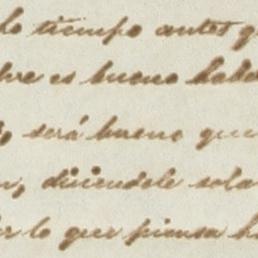 do tiempo antes q
bre es bueno habe
o, será bueno que
n, diciendole sola
er lo que piensa h